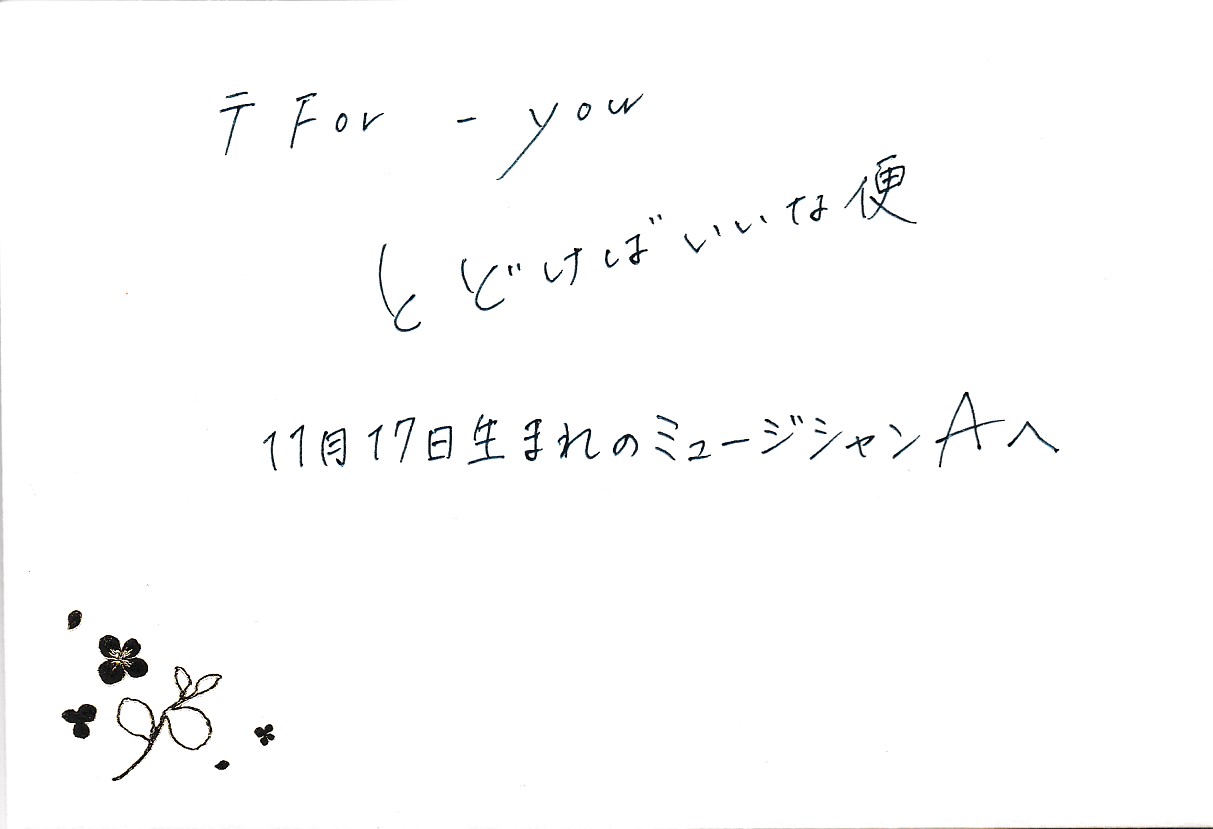 〒 For - you
とどけばいいな便
11月17日生まれのミュージシャンAへ